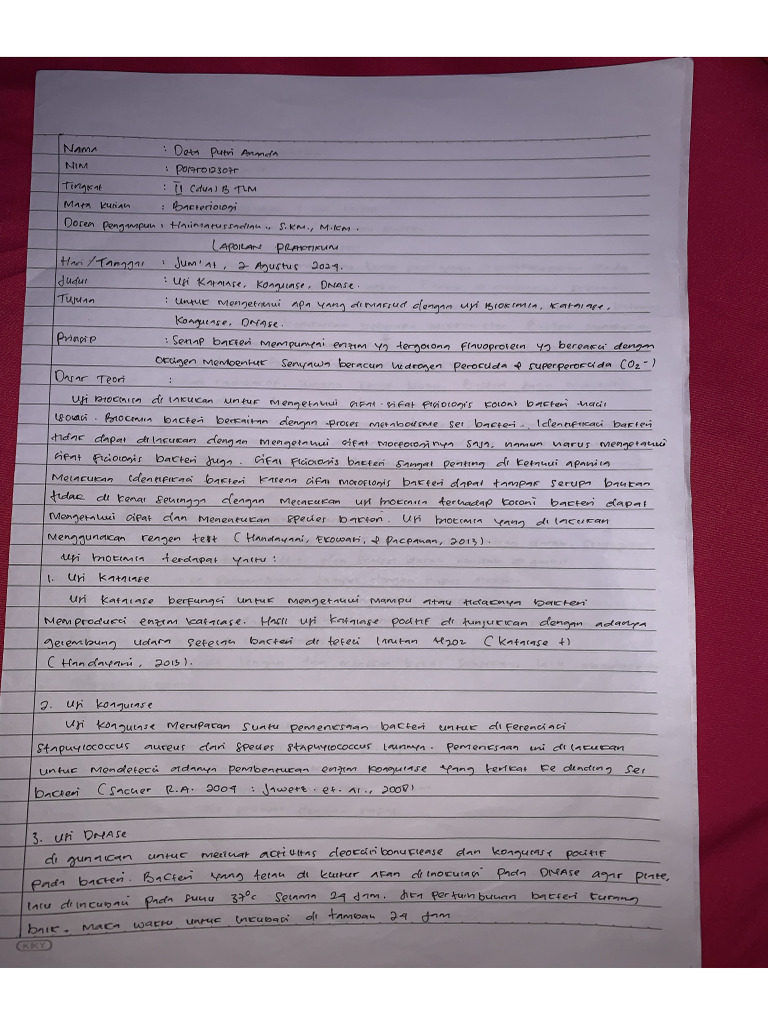 Nama : Deta Putri Ananda
NIM : P01750123075
Tingkat : II (dua) B TLM
Mata Kuliah : Bacteriologi
Dosen Pengampuh : Halimatussadiah., S.KM., M.IKM.
LAPORAN PRAKTIKUM
Hari / Tanggal : Jum'at, 2 Agustus 2024.
Judul : Uji Katalase, Koagulase, DNase.
Tujuan : Untuk Mengetahui apa yang dimaksud dengan uji Biokimia, Katalase,
Koagulase, DNAse.
Prinsip : Setiap bakteri mempunyai enzim yg tergolong flavoprotein yg bereaksi dengan
Oksigen Membentuk Senyawa beracun hidrogen peroksida & superperoksida (O2-)
Dasar Teori :
Uji biokimia di lakukan untuk mengetahui sifat-sifat fisiologis koloni bakteri hasil
isolasi. Biokimia bakteri berkaitan dengan proses metabolisme sel bakteri. Identifikasi bakteri
tidak dapat dilakukan dengan mengetahui sifat morfologinya saja, namun harus mengetahui
sifat fisiologis bakteri juga. Sifat fisiologis bakteri sangat penting di ketahui apabila
Melakukan identifikasi bakteri karena sifat morfologis bakteri dapat tampak serupa bahkan
tidak di kenal sehingga dengan melakukan uji biokimia terhadap koloni bakteri dapat
Mengetahui sifat dan Menentukan species bakteri. Uji biokimia yang di lakukan
Menggunakan reagen test (Handayani, Ekowati, & Pacpahan, 2013).
Uji biokimia terdapat yaitu :
1. Uji Katalase
Uji Katalase berfungsi untuk mengetahui mampu atau tidaknya bakteri
Memproduksi enzim katalase. Hasil uji katalase positif di tunjukkan dengan adanya
gelembung udara setelah bakteri di tetesi larutan H2O2 (Katalase +)
(Handayani, 2013).
2. Uji Koagulase
Uji koagulase Merupakan suatu pemeriksaan bakteri untuk diferensiasi
Staphylococcus aureus dari species staphylococcus lainnya. Pemeriksaan ini di lakukan
untuk mendeteksi adanya pembentukan enzim koagulase yang terikat ke dinding sel
bakteri (Sacher R.A. 2004 : Jawetz. et. al., 2008)
3. Uji DNASE
di gunakan untuk melihat activitas deoksiribonuklease dan koagulase positif
Pada bakteri. Bakteri yang telah di kultur akan di inokulasi pada DNASE agar plate,
lalu di incubasi pada suhu 37°c selama 24 jam. Jika pertumbuhan bakteri kurang
baik. Maka waktu untuk incubasi di tambah 24 jam
KKY